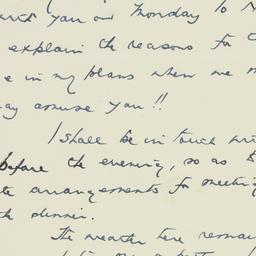 with you on Monday to
explain the reasons for
in my plans when we
may amuse you!!
I shall be in touch
before the evening, so as
arrangements for meeting
dinner.
The weather here